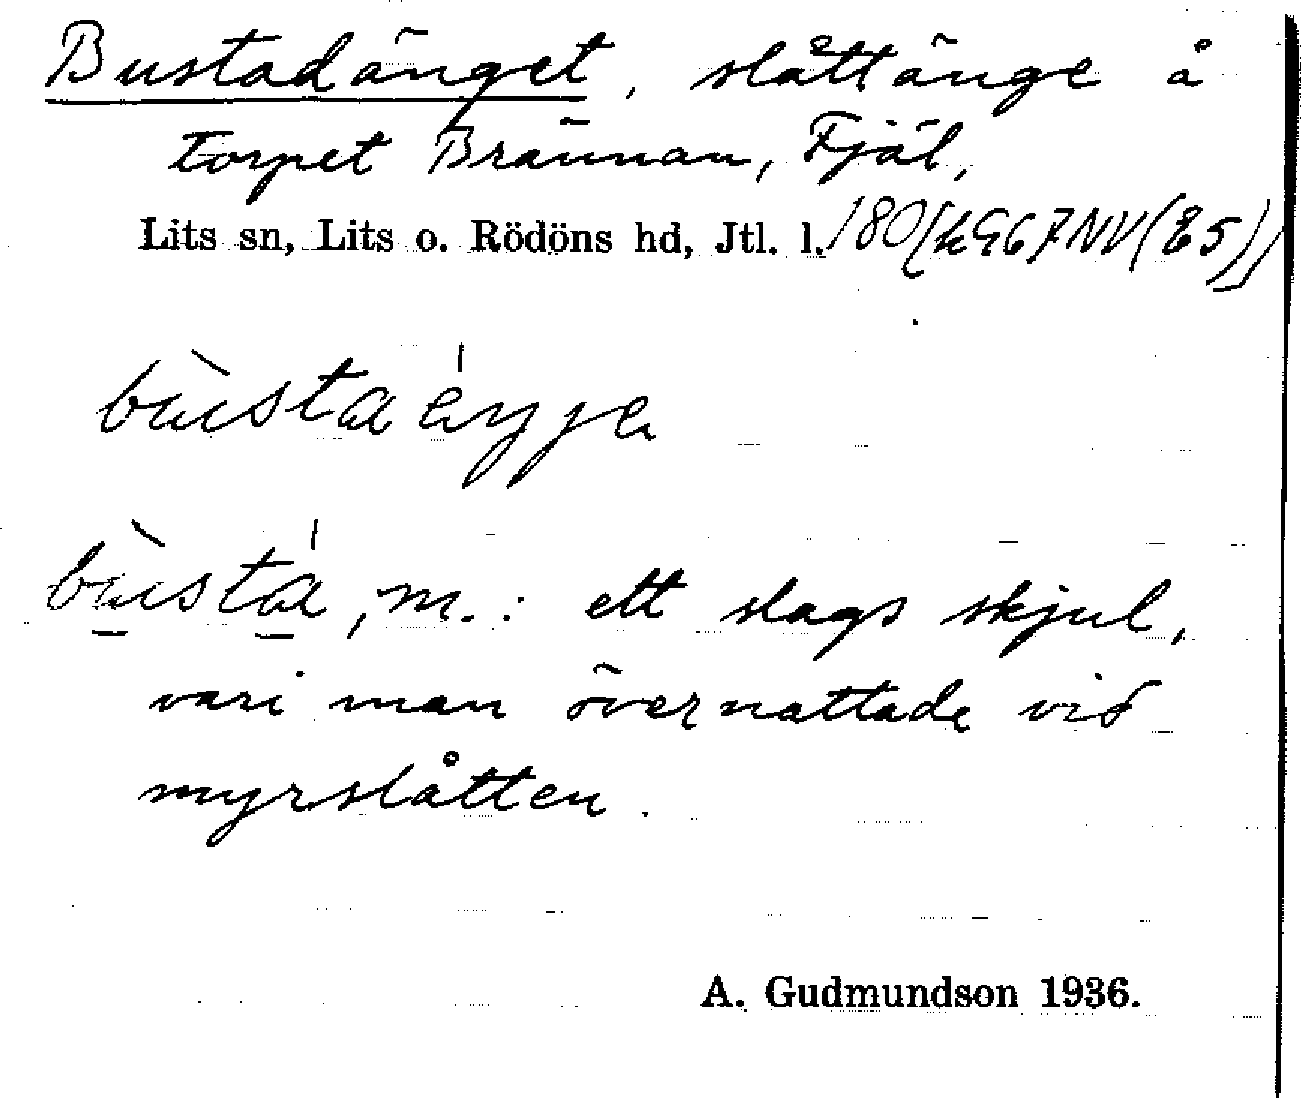 Bustadänget, slåttänge å
torpet Brännan, Fjäl,
Lits sn, Lits o. Rödöns hd, Jtl. l.
bùstaéŋje
bùstá, m.: ett slags skjul,
vari man övernattade vid
myrslåtten.
A. Gudmundson 1936.